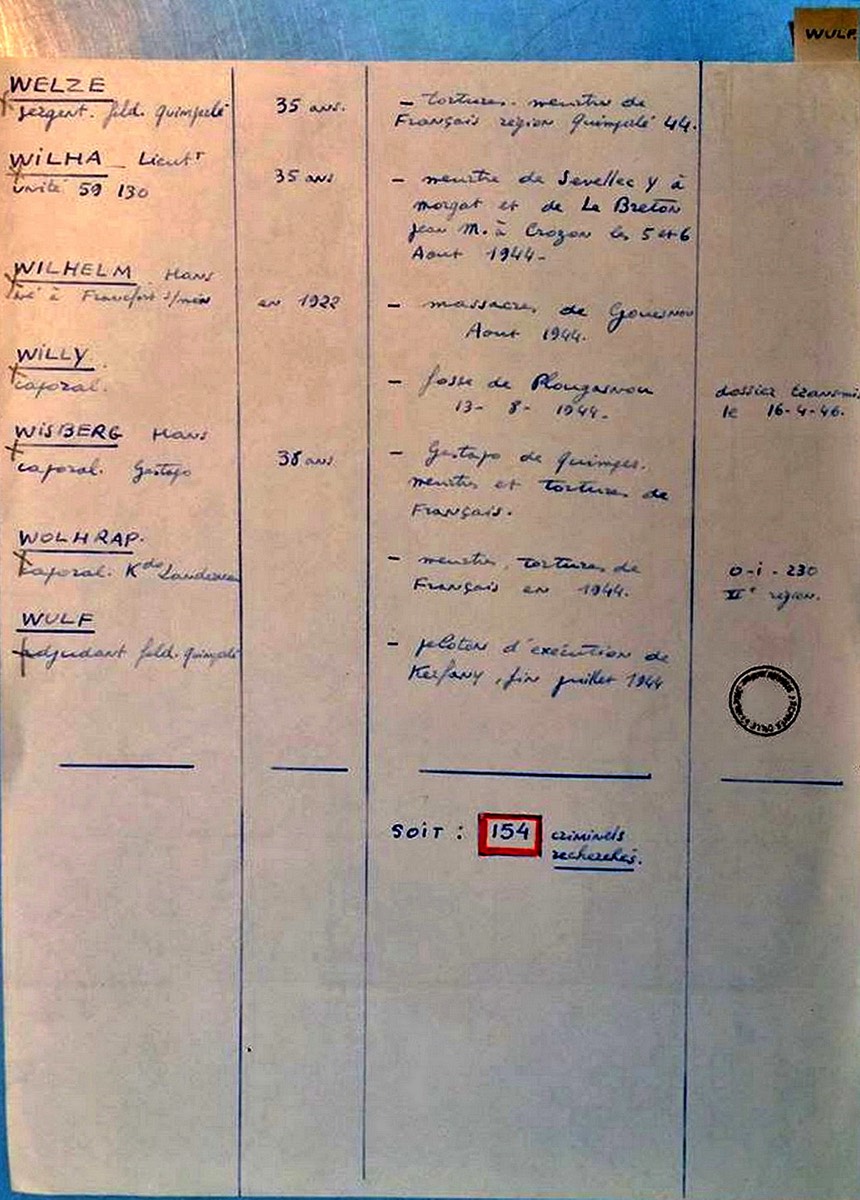 WULF
WELZE
sergent. feld. quimperlé
35 ans.
- tortures. meurtres de
Français région Quimperlé 44.
WILHA Lieut^t
unité 59 130
35 ans
- meurtre de Sevellec Y à
morgat et de Le Breton
jean M. à Crozon les 5 et 6
Aout 1944-
WILHELM Hans
né à Francfort s/mein
en 1922
- massacres de Gouesnou
Aout 1944.
WILLY
caporal.
- fosse de Plougasnou
13- 8- 1944-
dossier transmis
le 16-4-46.
WISBERG Hans
caporal. Gestapo
38 ans
- Gestapo de quimper.
meurtres et tortures de
Français.
WOLHRAP.
caporal. K^do Landerneau
- meurtres, tortures de
Français en 1944.
0-i-230
région.
WULF
adjudant feld. quimperlé
- peloton d'exécution de
Kerfany, fin juillet 1944
SOIT : 154 criminels
recherchés.